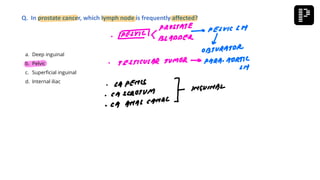 Q. In prostate cancer, which lymph node is frequently affected?
a. Deep inguinal
b. Pelvic
c. Superficial inguinal
d. Internal iliac
PELVIC
PROSTATE
BLADDER
PELVIC LN
OBTURATOR
TESTICULAR TUMOR → PARA-AORTIC
LN
CA PENIS
CA SCROTUM
CA ANAL CANAL
INGUINAL